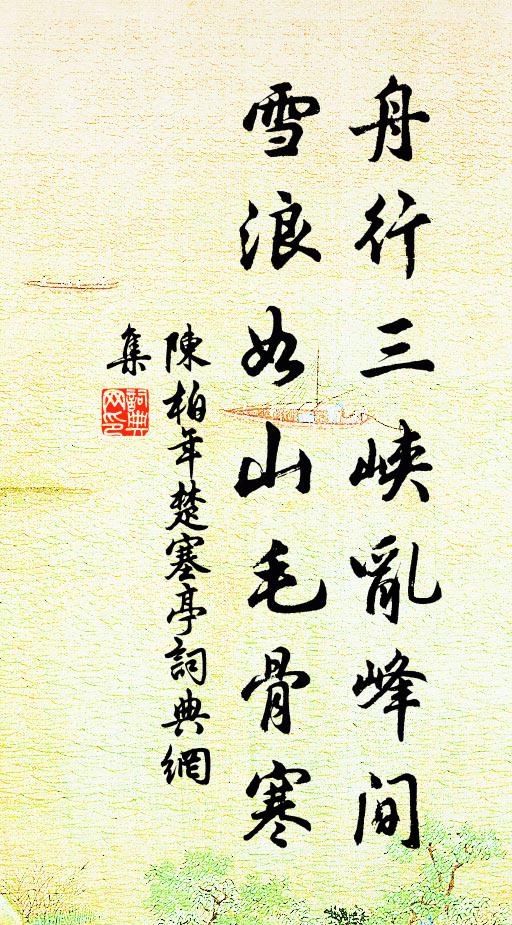 舟行三峽亂峰间
雪浪如山毛骨寒
陳柏年楚塞亭詞典網
集
詞典
网印